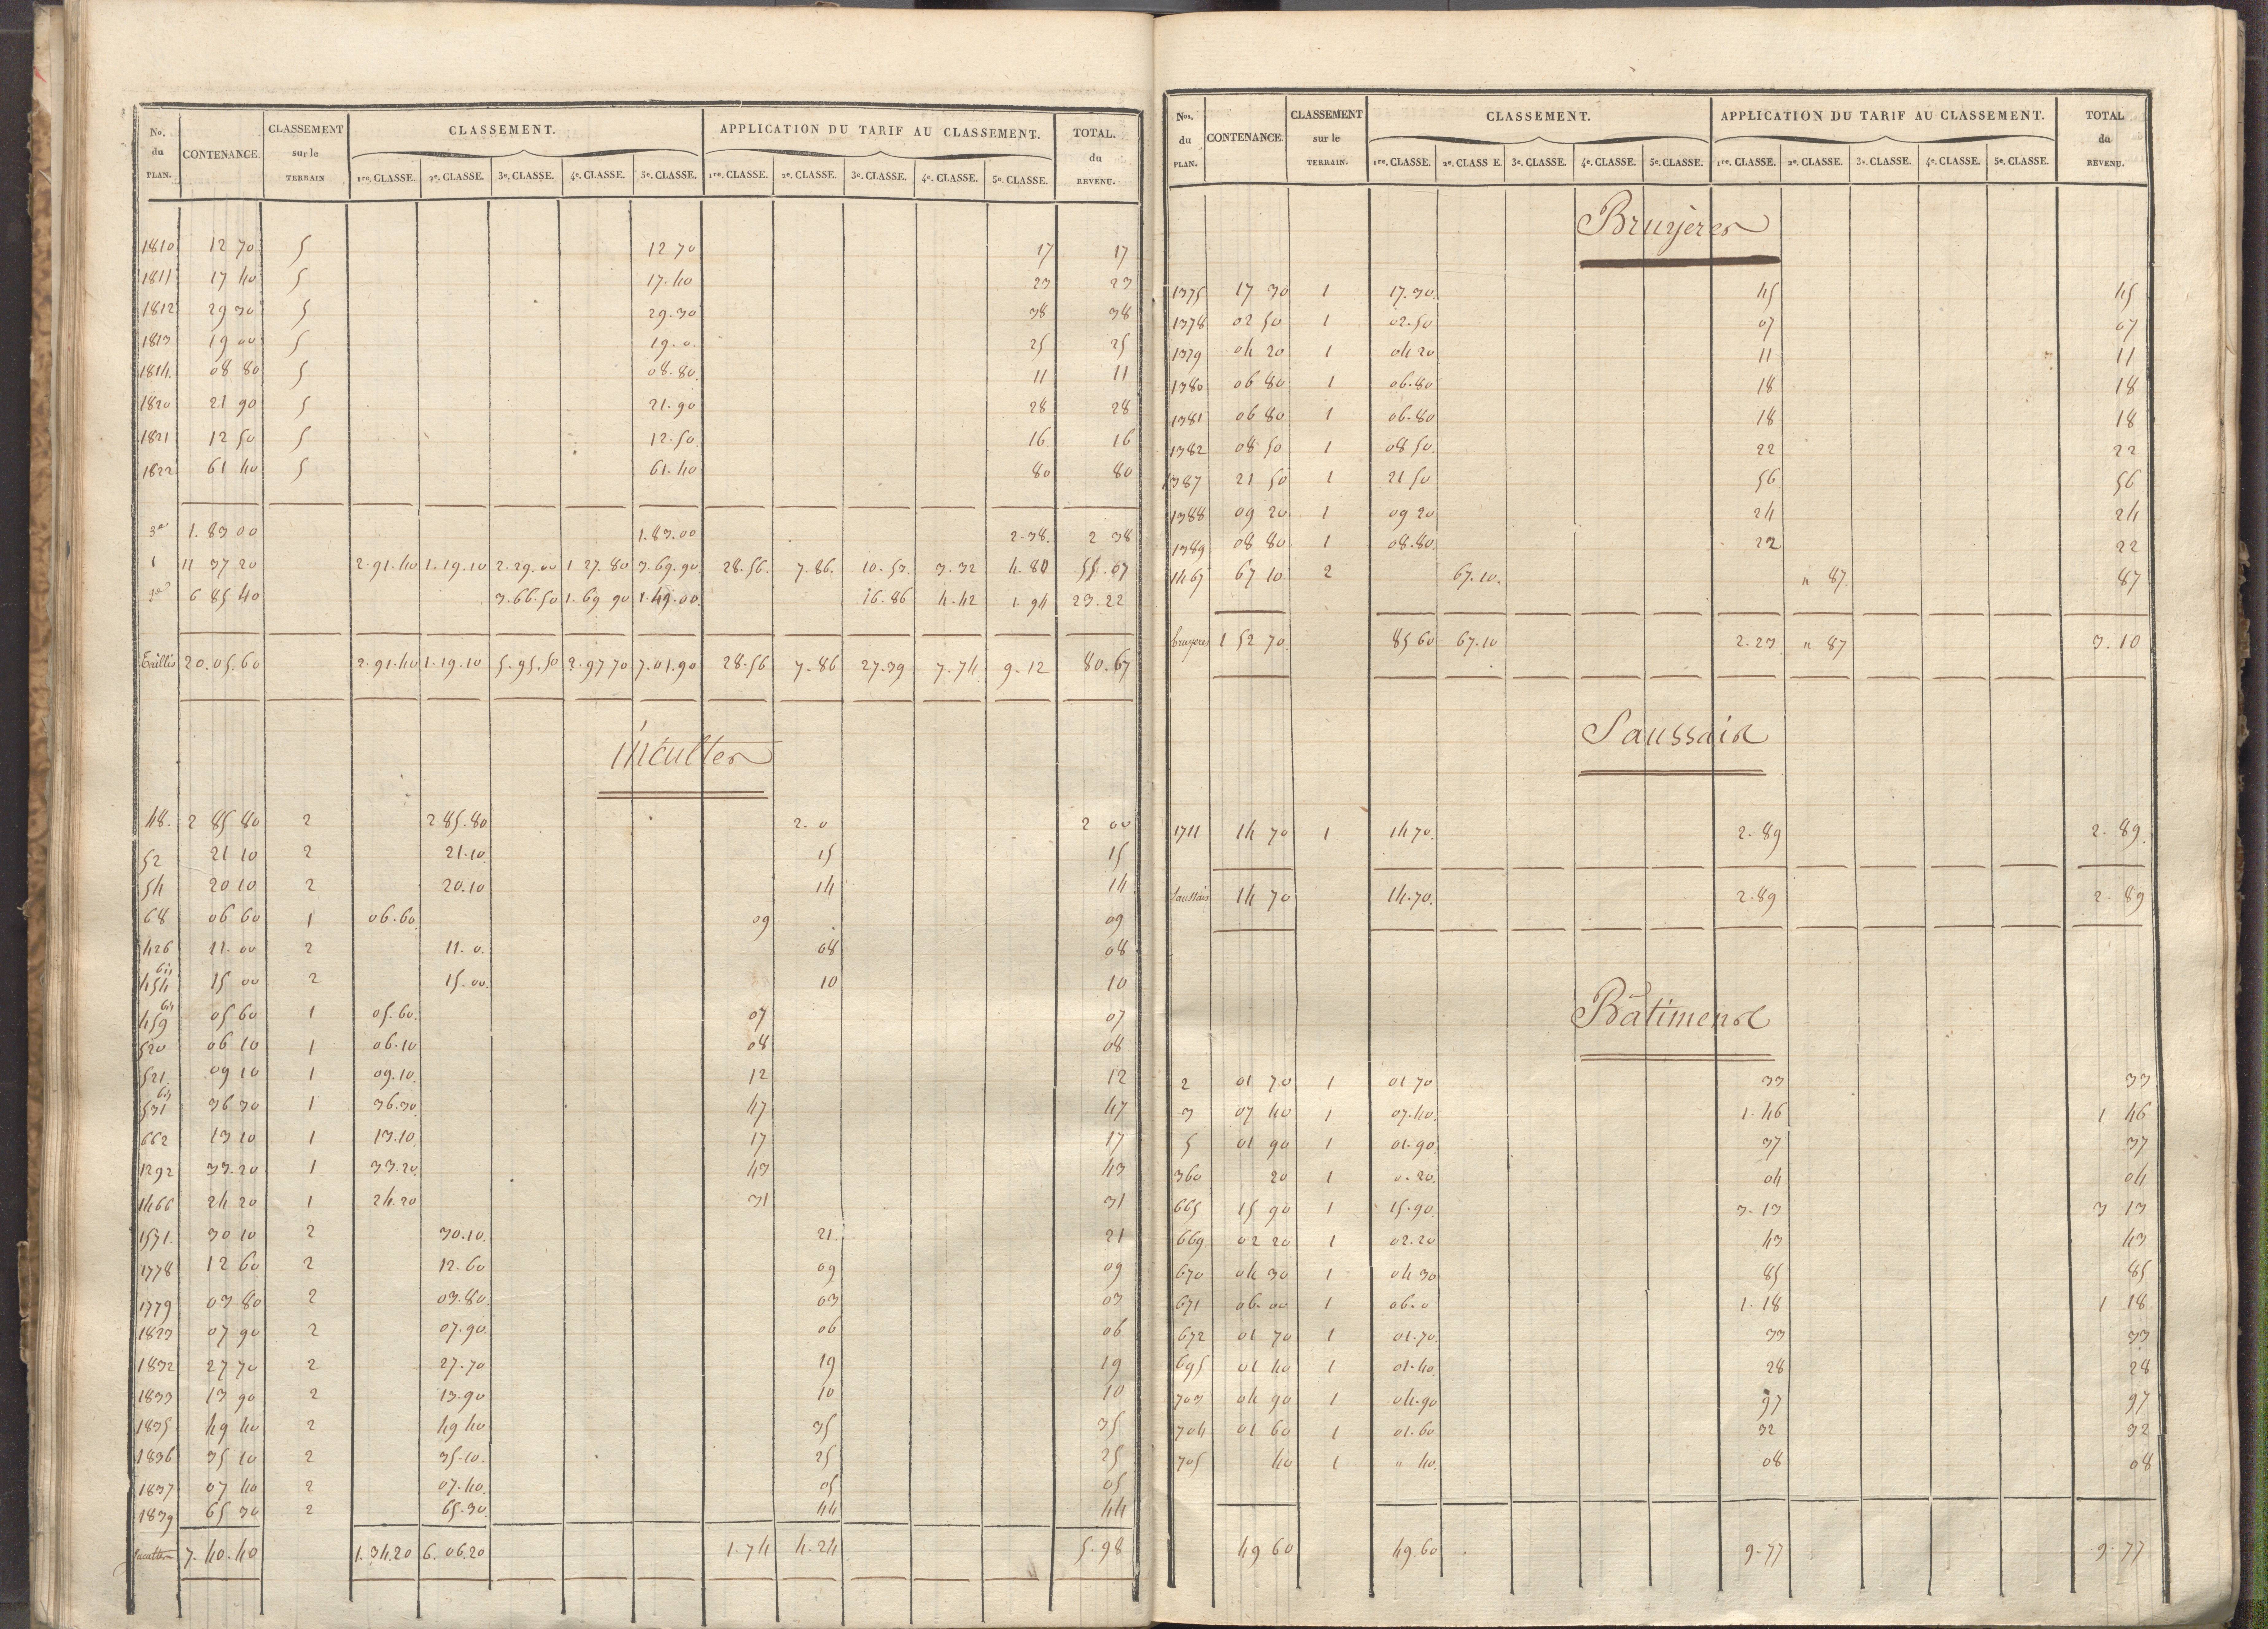 No. du PLAN. CONTENANCE. CLASSEMENT sur le TERRAIN CLASSEMENT. APPLICATION DU TARIF AU CLASSEMENT. TOTAL. du REVENU.
1re. CLASSE. 2e. CLASSE. 3e. CLASSE. 4e. CLASSE. 5e. CLASSE. 1re. CLASSE. 2e. CLASSE. 3e. CLASSE. 4e. CLASSE. 5e. CLASSE.
1810 12 70 5 12 70 17 17
1811 17 40 5 17.40 23 23
1812 29 30 5 29.30 38 38
1813 19 00 5 19.0. 25 25
1814. 08 80 5 08.80. 11 11
1820 21 90 5 21.90 28 28
1821 12 50 5 12.50. 16 16
1822 61 40 5 61.40 80 80
3e 1.83 00 1.83.00 2.38. 2 38
1 11 37 20 2.91.40 1.19.10 2.29.00 1 27.80 3.69.90. 28.56. 7.86. 10.53. 3.32 4.80 55.07
2e 6 85 40 3.66.50 1.69 90 1.49.00. 16.86 4.42 1.94 23.22
20.05.60 2.91.40 1.19.10 5.95.50 2.97 70 7.01.90 28.56 7.86 27.39 7.74 9.12 80.67
incultes
48. 2 85 80 2 2 85.80 2.0 2 00
52 21 10 2 21.10. 15 15
54 20 10 2 20.10 14 14
68 06 60 1 06.60. 09 09
426 11.00 2 11.0. 08 08
454 bis 15 00 2 15.00. 10 10
459 bis 05 60 1 05.60. 07 07
520 06 10 1 06.10 08 08
521. 09 10 1 09.10. 12 12
531 bis 36 30 1 36.30. 47 47
662 13 10 1 13.10. 17 17
1292 33.20 1 33.20. 43 43
1466 24 20 1 24.20 31 31
1531. 30 10 2 30.10. 21. 21
1778 12 60 2 12.60 09 09
1779 03 80 2 03.80. 03 03
1823 07 90 2 07.90. 06 06
1832 27 70 2 27.70 19 19
1833 13 90 2 13.90 10 10
1835 49 40 2 49 40 35 35
1836 35 10 2 35.10. 25 25
1837 07 40 2 07.40. 05 05
1839 65 30 2 65.30. 44 44
7.40.40 1.34.20 6.06.20 1.74 4.24 5.98
Nos. du PLAN. CONTENANCE. CLASSEMENT sur le TERRAIN. CLASSEMENT. APPLICATION DU TARIF AU CLASSEMENT. TOTAL du REVENU.
1re. CLASSE. 2e. CLASS E. 3e. CLASSE. 4e. CLASSE. 5e. CLASSE. 1re. CLASSE. 2e. CLASSE. 3e. CLASSE. 4e. CLASSE. 5e. CLASSE.
Bruyeres
1375 17 30 1 17.30. 45 45
1378 02 50 1 02.50 07 07
1379 04 20 1 04 20 11 11
1380 06 80 1 06.80 18 18
1381 06 80 1 06.80 18 18
1382 08 50 1 08 50. 22 22
1387 21 50 1 21 50 56 56
1388 09 20 1 09 20 24 24
1389 08 80 1 08.80. 22 22
1467 67 10 2 67.10. " 87. 87
bruyeres 1 52 70 85 60 67.10 2.23 " 87 3.10
Saussaie
1711 14 70 1 14 70. 2.89 2.89.
Saussaie 14 70 14.70. 2.89 2.89
Bâtiments
2 01 70 1 01 70 33 33
3 07 40 1 07.40. 1.46 1 46
5 01 90 1 01.90. 37 37
360 20 1 0.20. 04 04
665 15 90 1 15.90. 3.13 3 13
669 02 20 1 02.20 43 43
670 04 30 1 04 30 85 85
671 06.00 1 06.0 1.18 1 18
672 01 70 1 01.70. 33 33
695 01 40 1 01.40. 28 28
703 04 90 1 04.90 97 97
704 01 60 1 01.60 32 32
705 40 1 " 40. 08 08
49 60 49.60 9.77 9.77